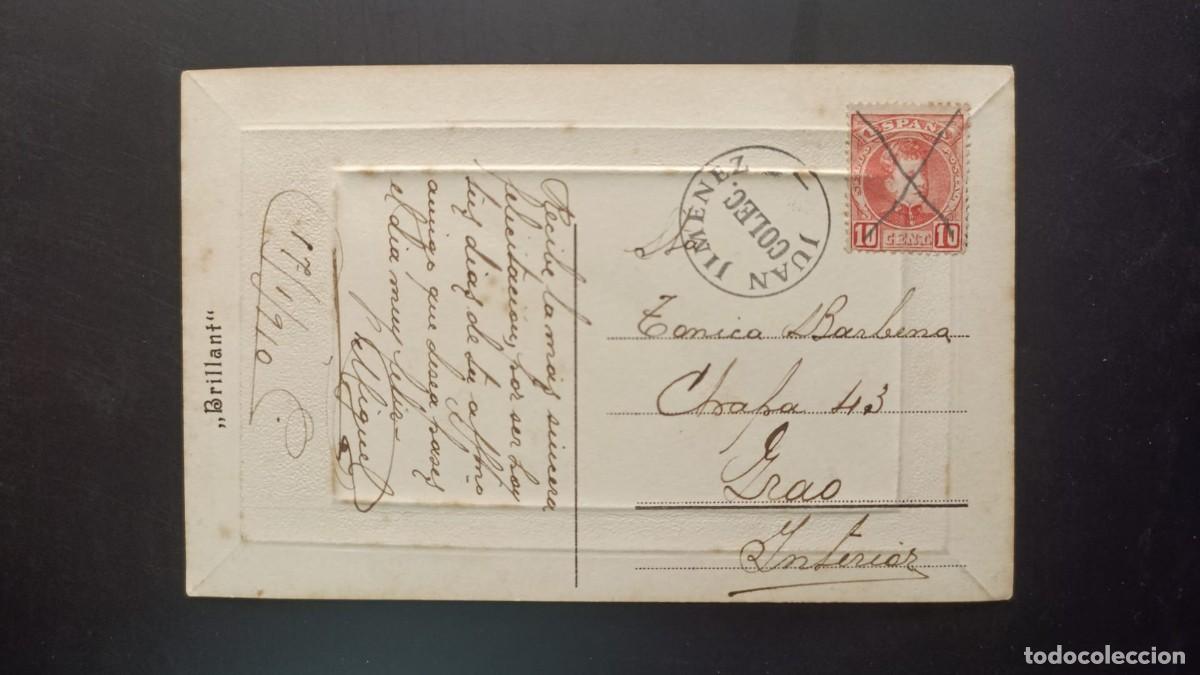 „Brillant“
17/1/910
Recibe la mas sincera
felicitacion, por ser hoy
tus dias de tu affmo
amigo que desea pases
el dia muy feliz
Miguel
JUAN JIMÉNEZ
COLEC.
ESPAÑA
10 CENT 10
Tonica Barbena
Chapa 43
Grao
Interior
todocoleccion